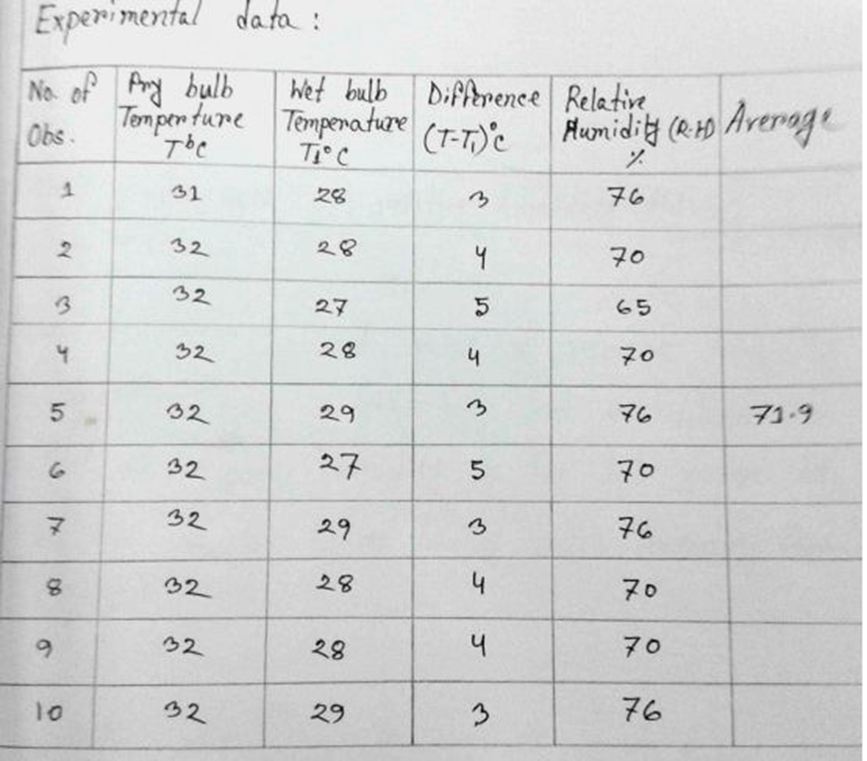 Experimental data :
No. of Obs. Dry bulb Temperture T°C Wet bulb Temperature T1°C Difference (T-T1)°C Relative Humidity (R.H) % Average
1 31 28 3 76
2 32 28 4 70
3 32 27 5 65
4 32 28 4 70
5 32 29 3 76 71.9
6 32 27 5 70
7 32 29 3 76
8 32 28 4 70
9 32 28 4 70
10 32 29 3 76